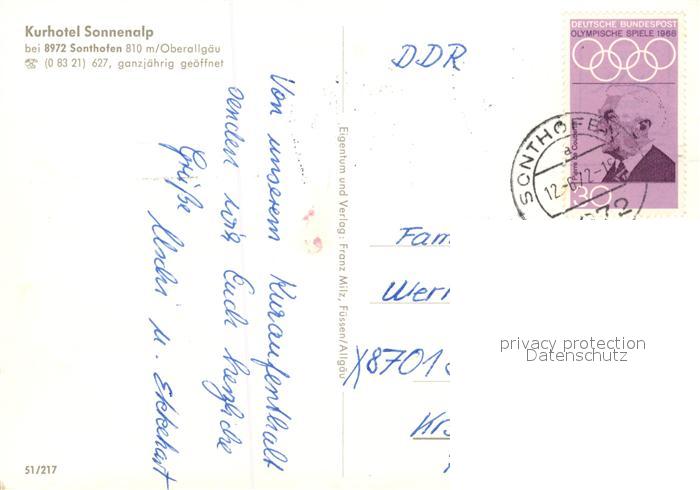 Kurhotel Sonnenalp
bei 8972 Sonthofen 810 m/Oberallgäu
☎ (0 83 21) 627, ganzjährig geöffnet
Von unserem Kuraufenthalt
senden wir Euch herzliche
Grüße
Uschi u. Ekkehart
51/217
Eigentum und Verlag: Franz Milz, Füssen/Allgäu
DDR
DEUTSCHE BUNDESPOST
OLYMPISCHE SPIELE 1968
30
SONTHOFE
a
12-6.72-1
972
Fam
Wern
8701
Kr
privacy protection
Datenschutz